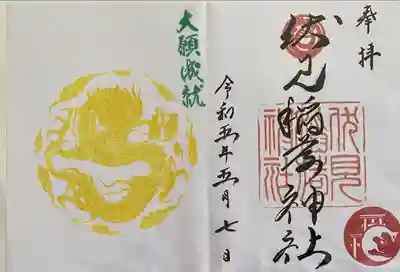 奉拝
伏見稲荷神社
伏見
稲荷
神社
令和五年五月七日
大願成就